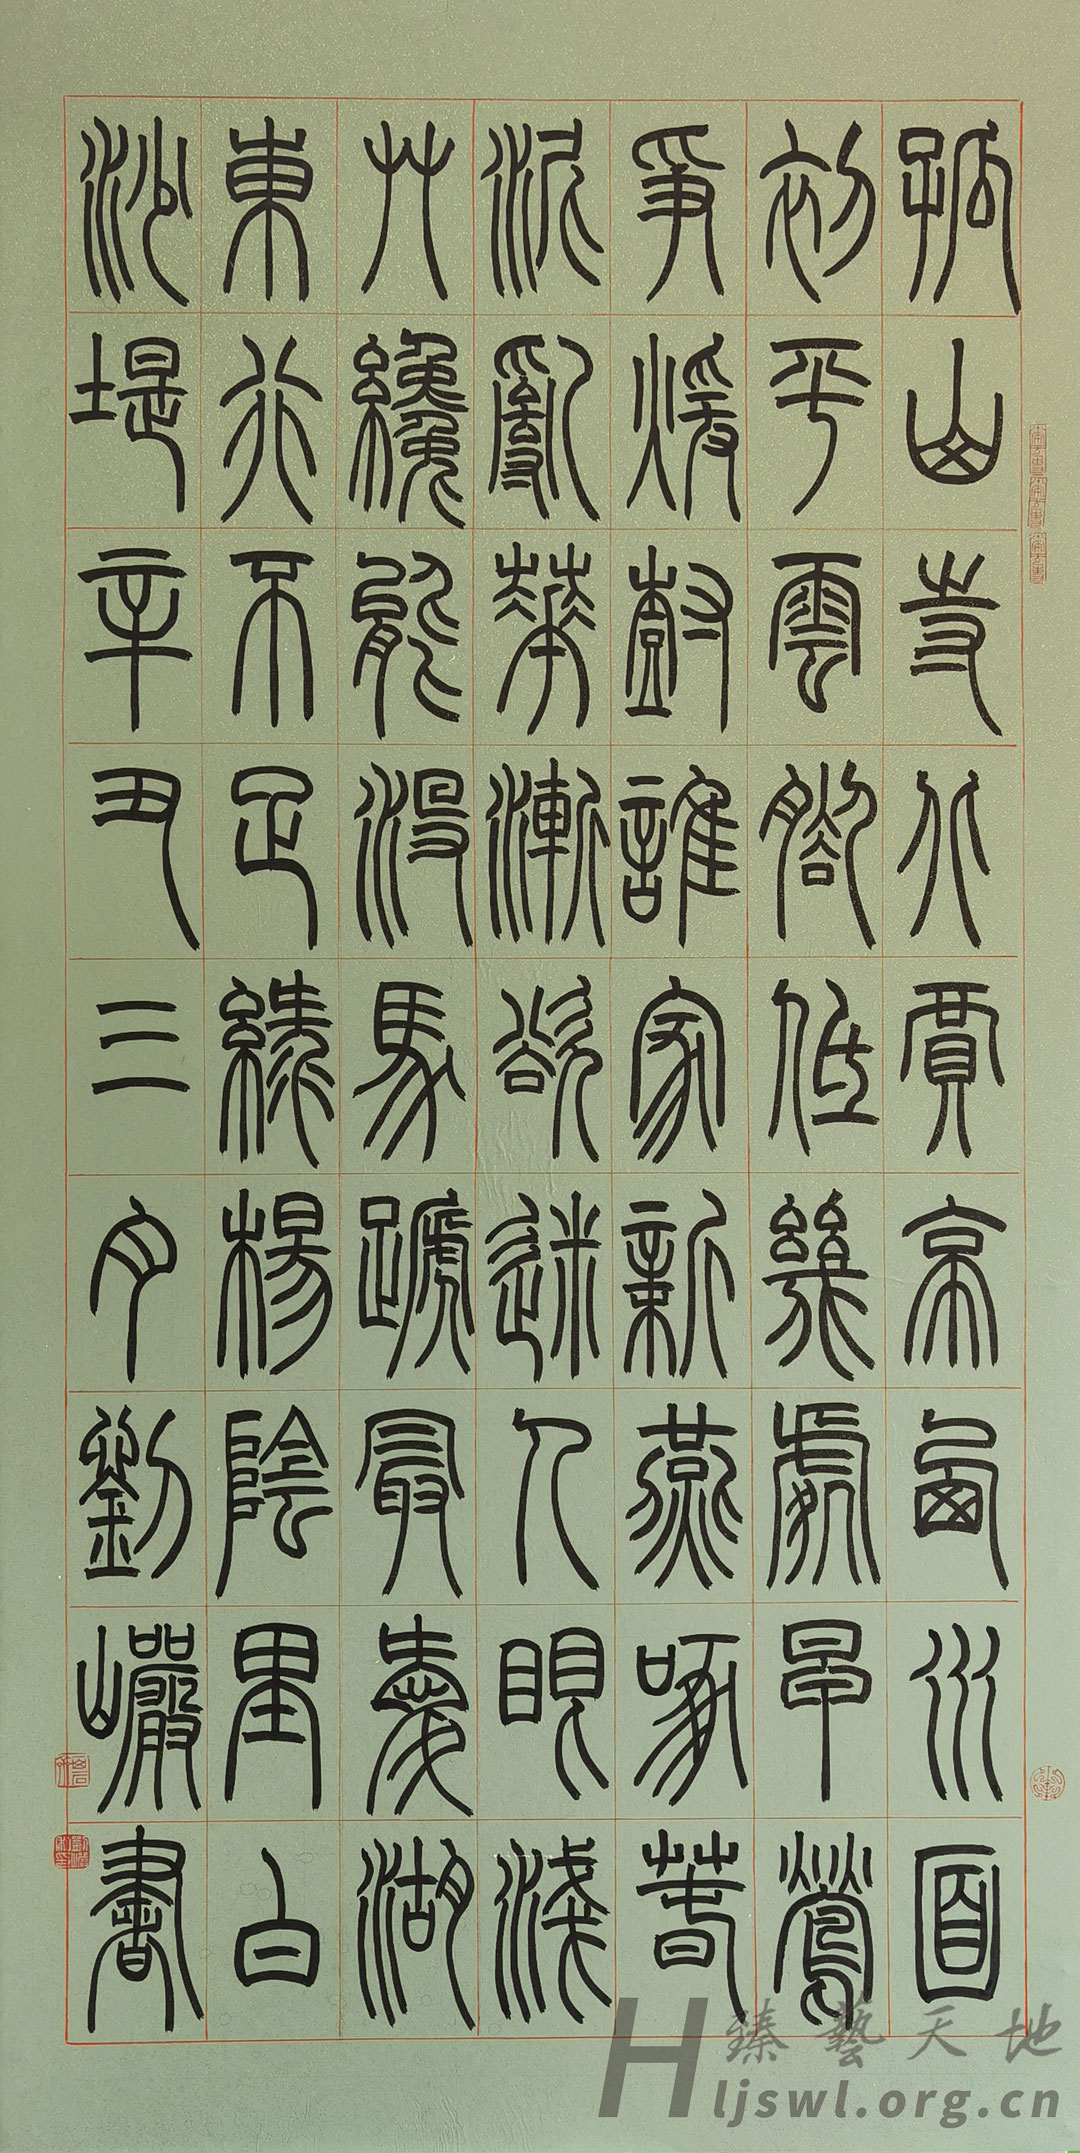 孤山寺北賈亭西水面
初平雲腳低幾處早鶯
爭煖樹誰家新燕啄春
泥亂華漸欲迷人眼淺
艸纔能沒馬蹏最愛湖
東行不足綠楊陰里白
沙堤辛丑三月劉巖書
臻藝天地
Hljswl.org.cn